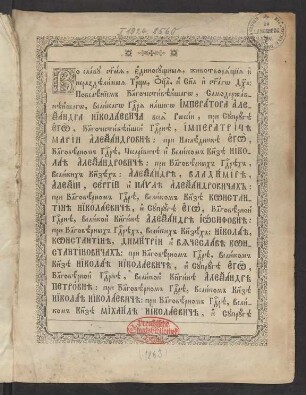 Во славу ст҃ыѧ, единосꙋщныѧ, животворѧщїѧ и
нераздѣлимыѧ Трⷪ҇цы, Оц҃а, и Сн҃а и ст҃агѡ Дх҃а:
Повелѣнїемъ Благочестивѣйшагѡ, Самодержав-
нѣйшагѡ, Великагѡ Гдⷭ҇рѧ нашегѡ ІМПЕРАТОРА АЛЕ-
ѮАНДРА НІКОЛАЕВИЧА всеѧ Рѡссїи, при Сꙋпрꙋгѣ
ЕГѠ, Благочестивѣйшей Гдⷭ҇рнѣ, ІМПЕРАТРІЦѢ
МАРІИ АЛЕѮАНДРОВНѢ: при Наслѣдникѣ ЕГѠ,
Благовѣрномъ Гдⷭ҇рѣ, Цесаревичѣ и Великомъ Кнѧзѣ НІКО-
ЛАѢ АЛЕѮАНДРОВИЧѢ: при Благовѣрныхъ Гдⷭ҇рѣхъ,
Великихъ Кнѧзѣхъ: АЛЕѮАНДРѢ, ВЛАДІМІРѢ,
АЛЕѮІИ, СЕРГІИ и ПАУЛѢ АЛЕѮАНДРОВИЧАХЪ:
при Благовѣрномъ Гдⷭ҇рѣ, Великомъ Кнѧзѣ КѠНСТАН-
ТІНѢ НІКОЛАЕВИЧѢ, и Сꙋпрꙋгѣ ЕГѠ, Благовѣрной
Гдⷭ҇рнѣ, Великой Кнѧгинѣ АЛЕѮАНДРѢ ІѠСИФОВНѢ:
при Благовѣрныхъ Гдⷭ҇рѣхъ, Великихъ Кнѧзѣхъ: НІКОЛАѢ,
КѠНСТАНТІНѢ, ДИМИТРІИ и ВѦЧЕСЛАВѢ КѠН-
СТАНТІНОВИЧАХЪ: при Благовѣрномъ Гдⷭ҇рѣ, Великомъ
Кнѧзѣ НІКОЛАѢ НІКОЛАЕВИЧѢ, и Сꙋпрꙋгѣ ЕГѠ,
Благовѣрной Гдⷭ҇рнѣ, Великой Кнѧгинѣ АЛЕѮАНДРѢ
ПЕТРОВНѢ: при Благовѣрномъ Гдⷭ҇рѣ, Великомъ Кнѧзѣ
НІКОЛАѢ НІКОЛАЕВИЧѢ: при Благовѣрномъ Гдⷭ҇рѣ, Вели-
комъ Кнѧзѣ МІХАИЛѢ НІКОЛАЕВИЧѢ, и Сꙋпрꙋгѣ